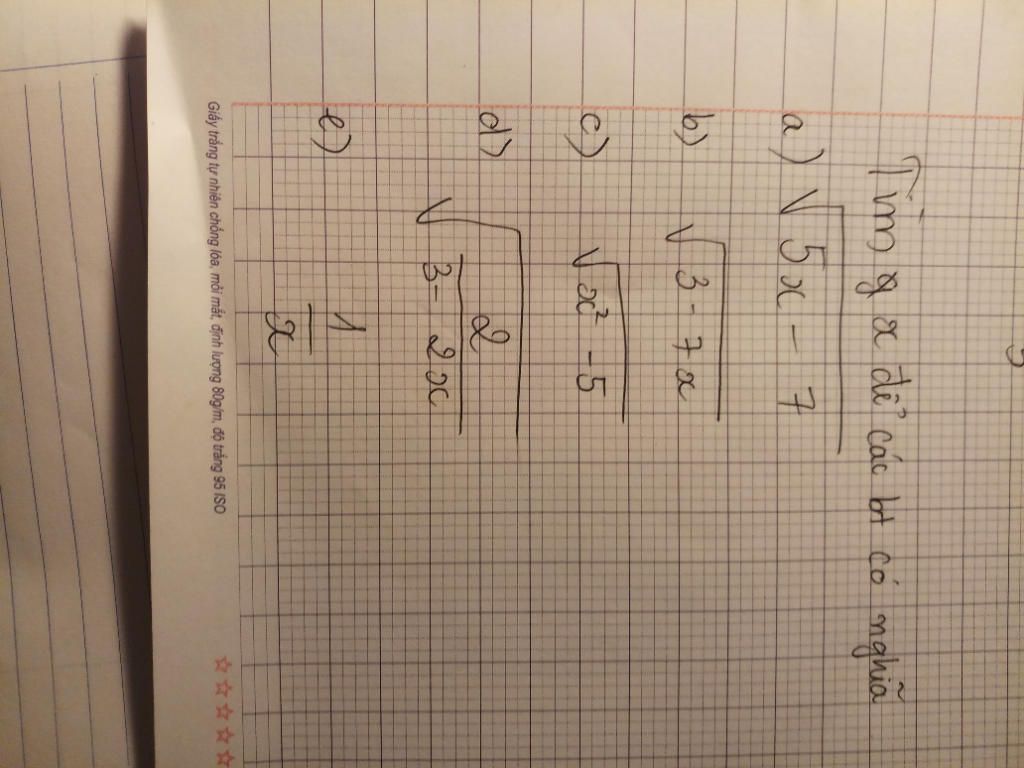 Tìm x để các bt có nghĩa
a) √5x - 7
b) √3 - 7x
c) √x² - 5
d) √2/3 - 2x
e) 1/x
Giấy trắng tự nhiên chống lóa, mỏi mắt, định lượng 80g/m, độ trắng 95 ISO